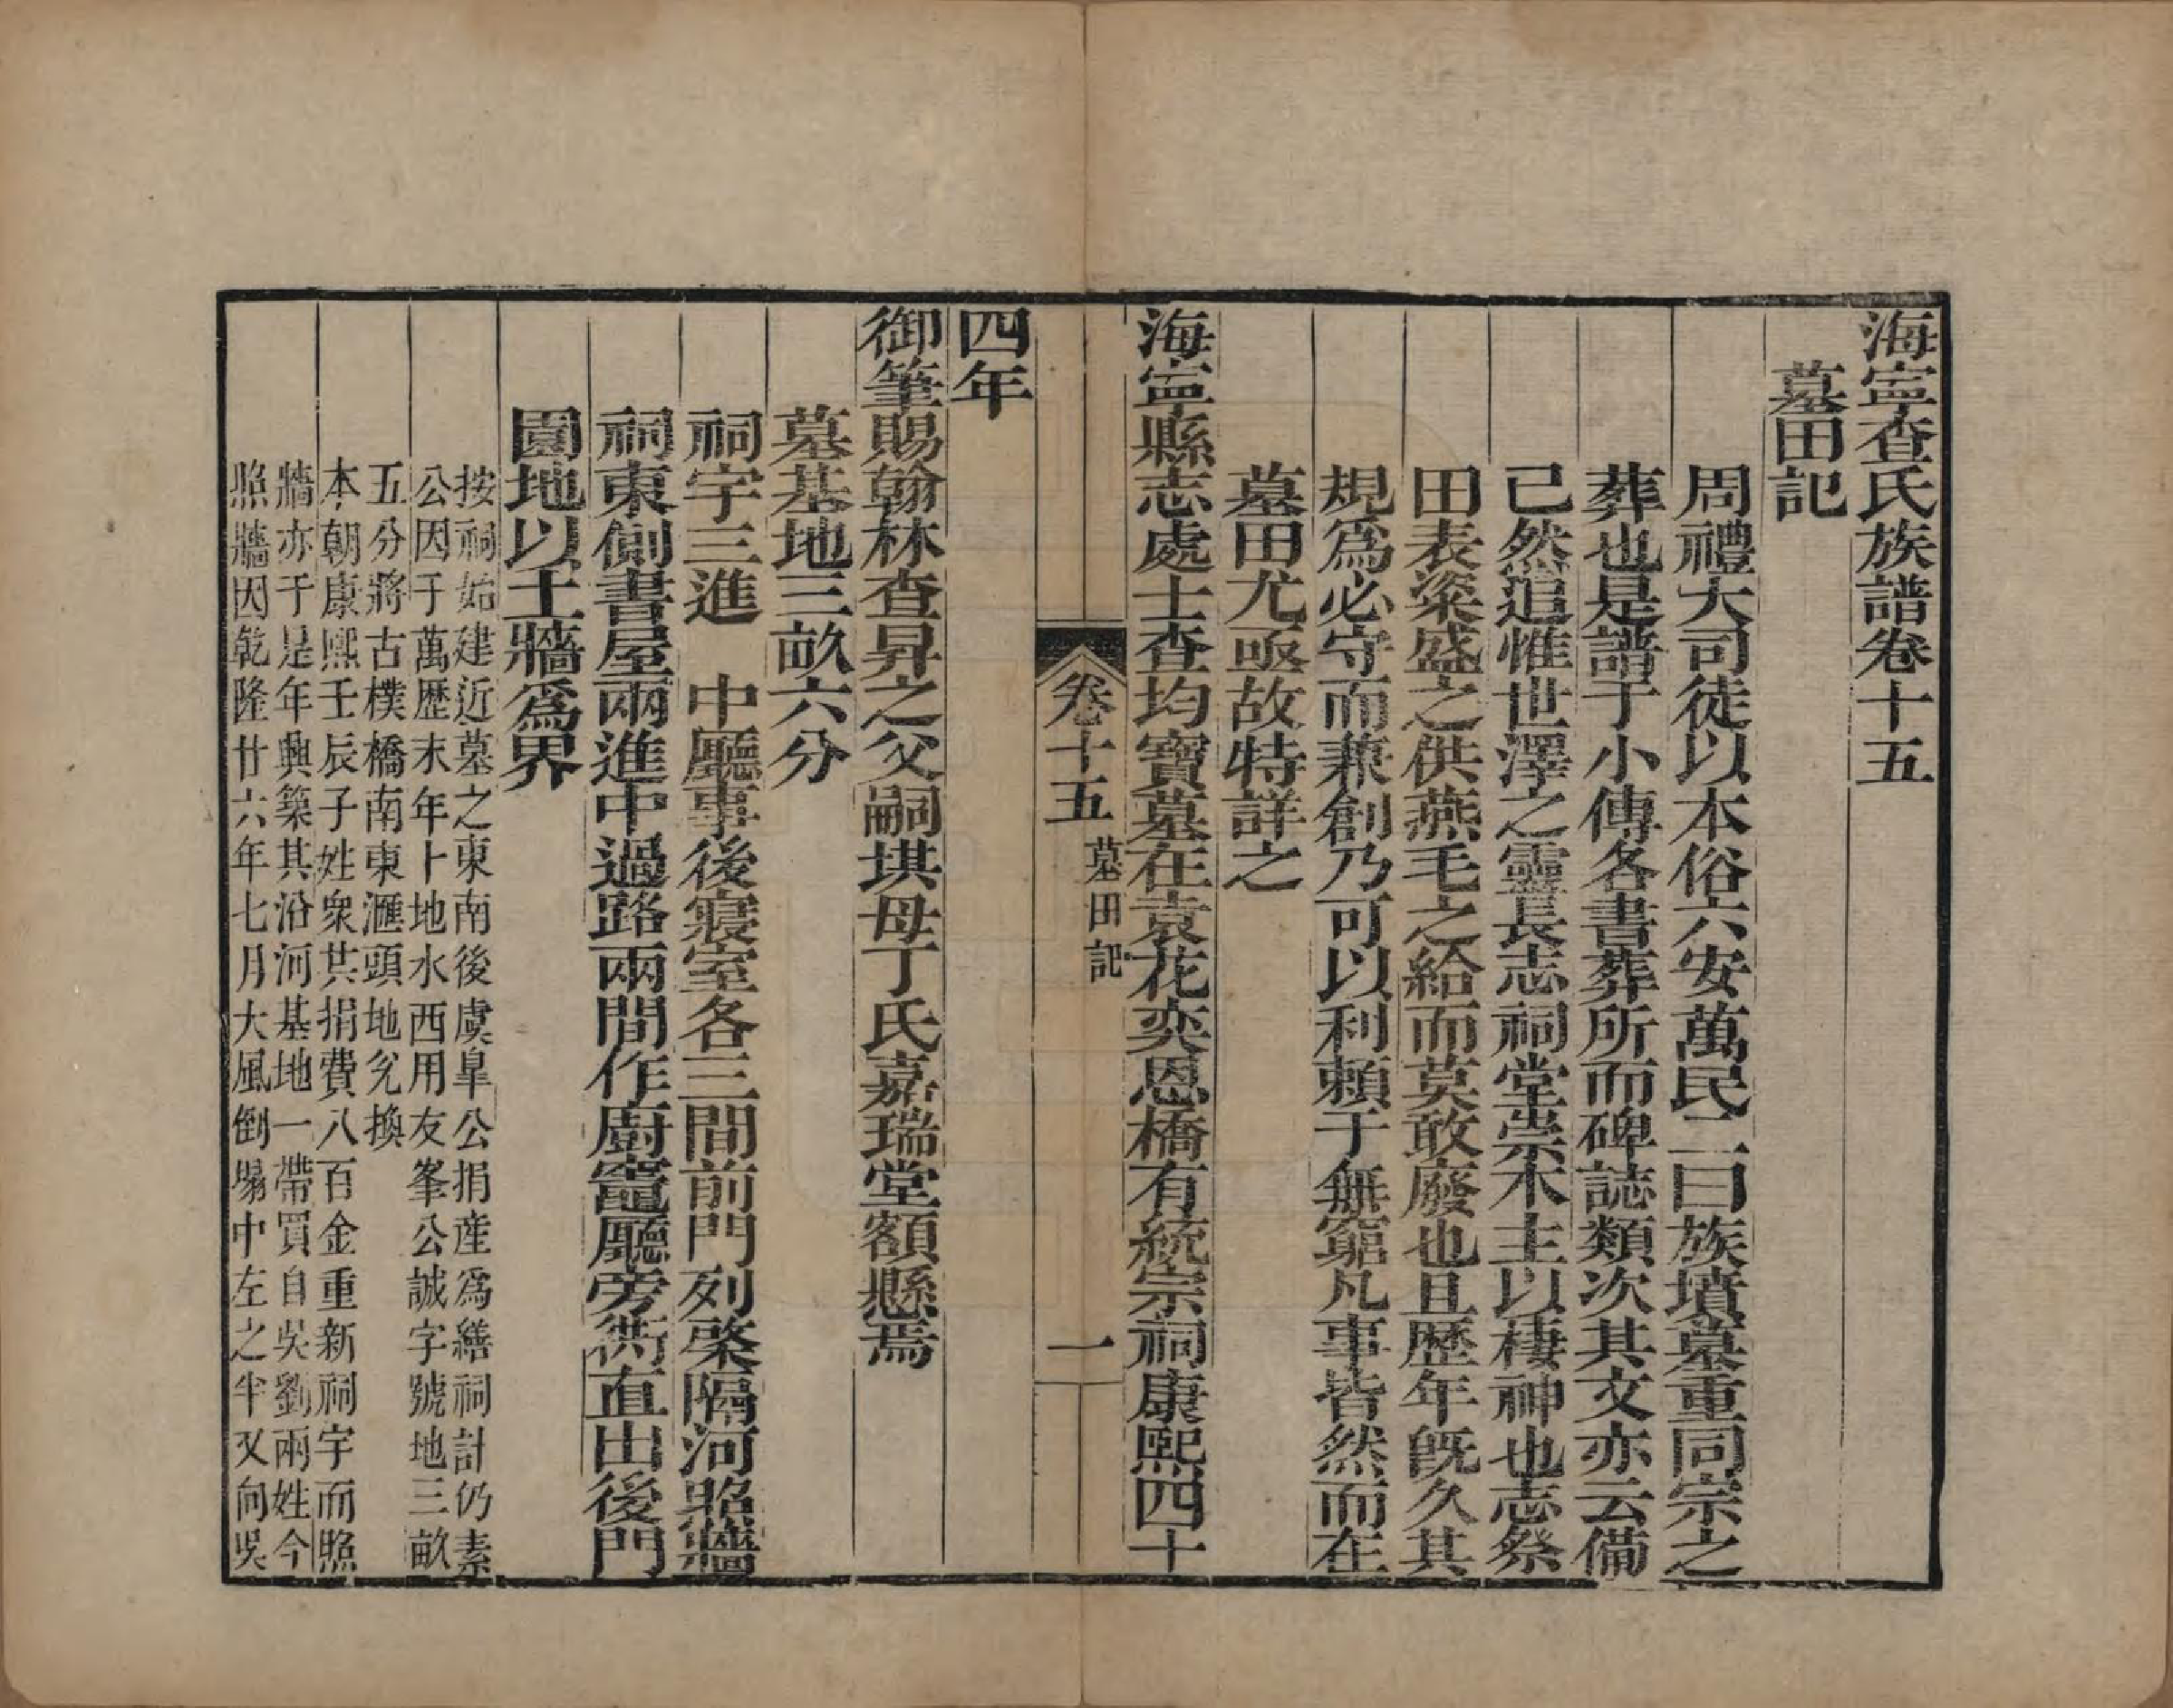 海寧查氏族譜卷十五
墓田記
周禮大司徒以本俗六安萬民二曰族墳墓重同宗之
葬也是譜于小傳各書葬所而碑誌類次其文亦云備
已然追惟世澤之靈長志祠堂崇木主以棲神也志祭
田表粢盛之供燕毛之給而莫敢廢也且歷年旣久其
規爲必守而兼創乃可以利賴于無窮凡事皆然而在
墓田尤亟故特詳之
海寧縣志處士查均寶墓在袁花奕恩橋有統宗祠康熙四十
卷十五
墓田記
一
四年
御筆賜翰林查昇之父嗣琪母丁氏嘉瑞堂額懸焉
墓基地三畝六分
祠宇三進　中廳事後寢室各三間前門列棨隔河照牆
祠東側書屋兩進中過路兩間作廚竈廳旁衖直出後門
園地以土牆爲界
按祠始建近墓之東南後虞臯公捐産爲繕祠計仍素
公因于萬歷末年卜地水西用友峯公誠字號地三畝
五分將古樸橋南東滙頭地兊換
本朝康熙壬辰子姓衆共捐費八百金重新祠宇而照
牆亦于是年興築其沿河基地一帶買自吳劉兩姓今
照牆因乾隆廿六年七月大風倒塌中左之半又向吳